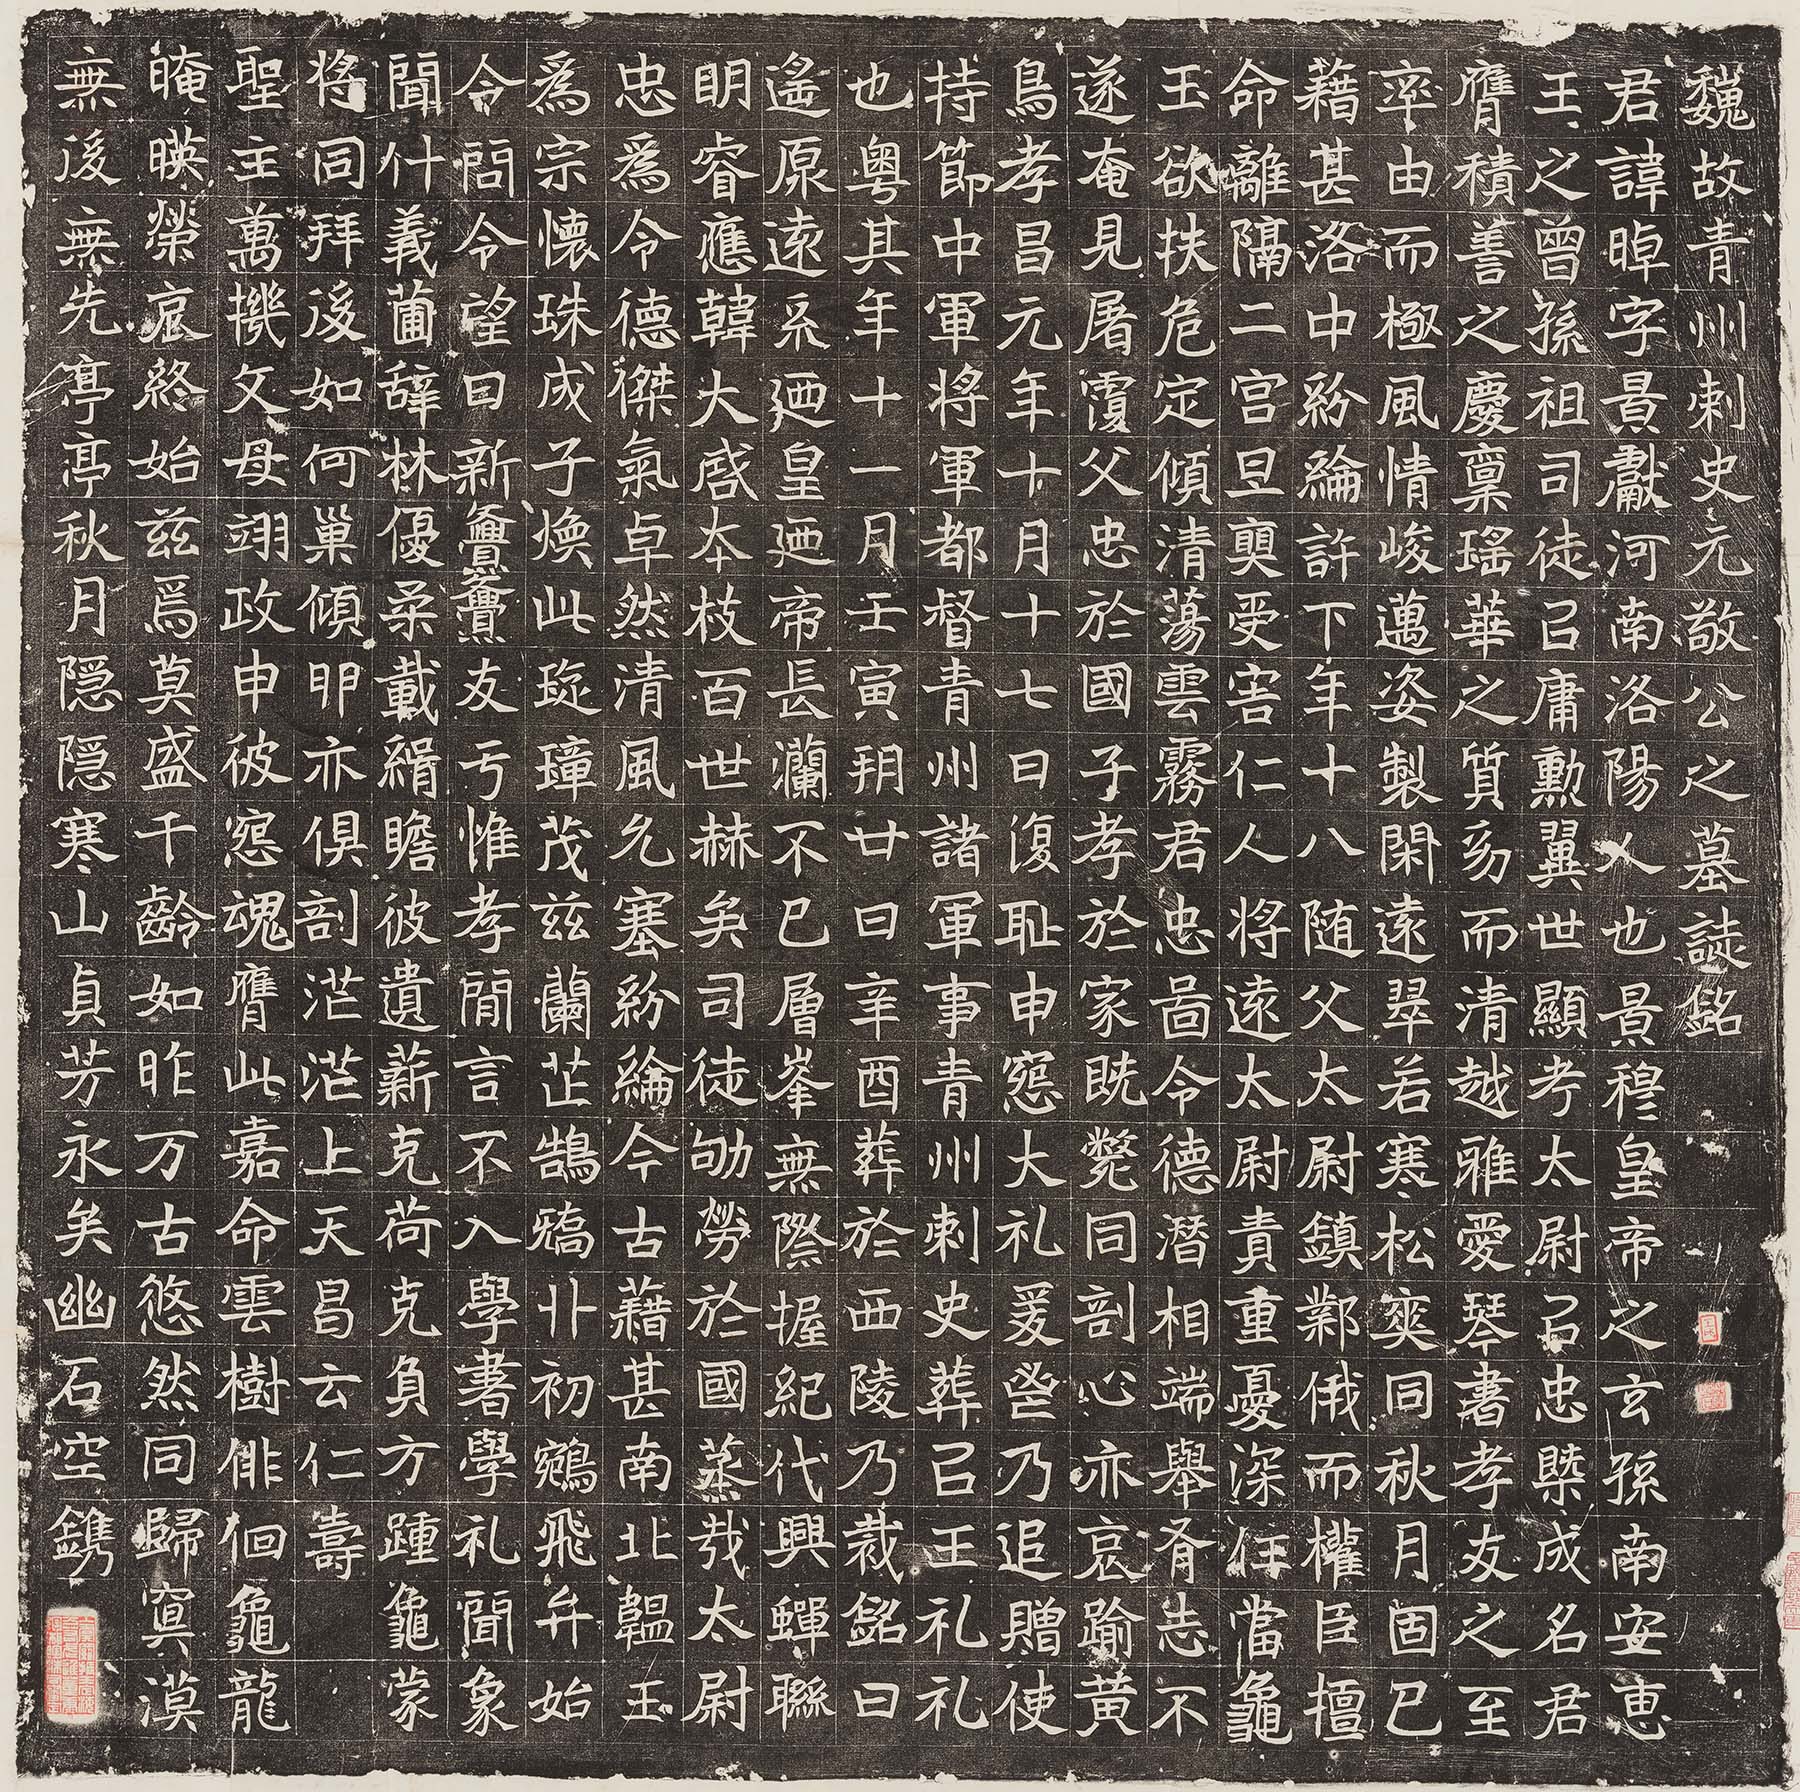 魏故青州刺史元敬公之墓誌銘
君諱晫字景獻河南洛陽人也景穆皇帝之玄孫南安惠
王之曾孫祖司徒以庸勳翼世顯考太尉以忠槩成名君
膺積善之慶稟瑤華之質幼而清越雅愛琴書孝友之至
率由而極風情峻邁姿製閑遠翠若寒松奕同秋月固已
藉甚洛中紛綸許下年十八随父太尉鎮鄴俄而權臣擅
命離隔二宫旦奭受害仁人將遠太尉責重憂深任當龜
玉欲扶危定傾清蕩雲霧君忠啚令德潛相端舉脊志不
遂奄見屠覆父忠於國子孝於家既斃同剖心亦哀踰黄
鳥孝昌元年十月十七日復耻申怨大礼爰俻乃追贈使
持節中軍將軍都督青州諸軍事青州刺史葬以王礼礼
也粤其年十一月壬寅朔廿日辛酉葬於西陵乃裁銘曰
遙原遠系迺皇迺帝長瀾不已層峯無際握紀代興蟬聯
明睿應韓大啓本枝百世赫矣司徒劬勞於國蒸哉太尉
忠爲令德傑氣卓然清風允塞紛綸今古藉甚南北韞玉
爲宗懷珠成子煥此琁璋茂兹蘭芷鵠矯丱初鵷飛弁始
令問令望日新亹亹友于惟孝簡言不入學書學礼聞象
聞什義圃辭林優柔載緝瞻彼遺薪克荷克負方踵龜蒙
將同拜後如何巢傾卵亦俱剖茫茫上天曷云仁壽
聖主萬機文母翊政申彼怨魂膺此嘉命雲樹俳佪龜龍
晻暎榮哀終始兹焉莫盛千齡如昨万古悠然同歸冥漠
無後無先亭亭秋月隠隠寒山貞芳永矣幽石空鐫